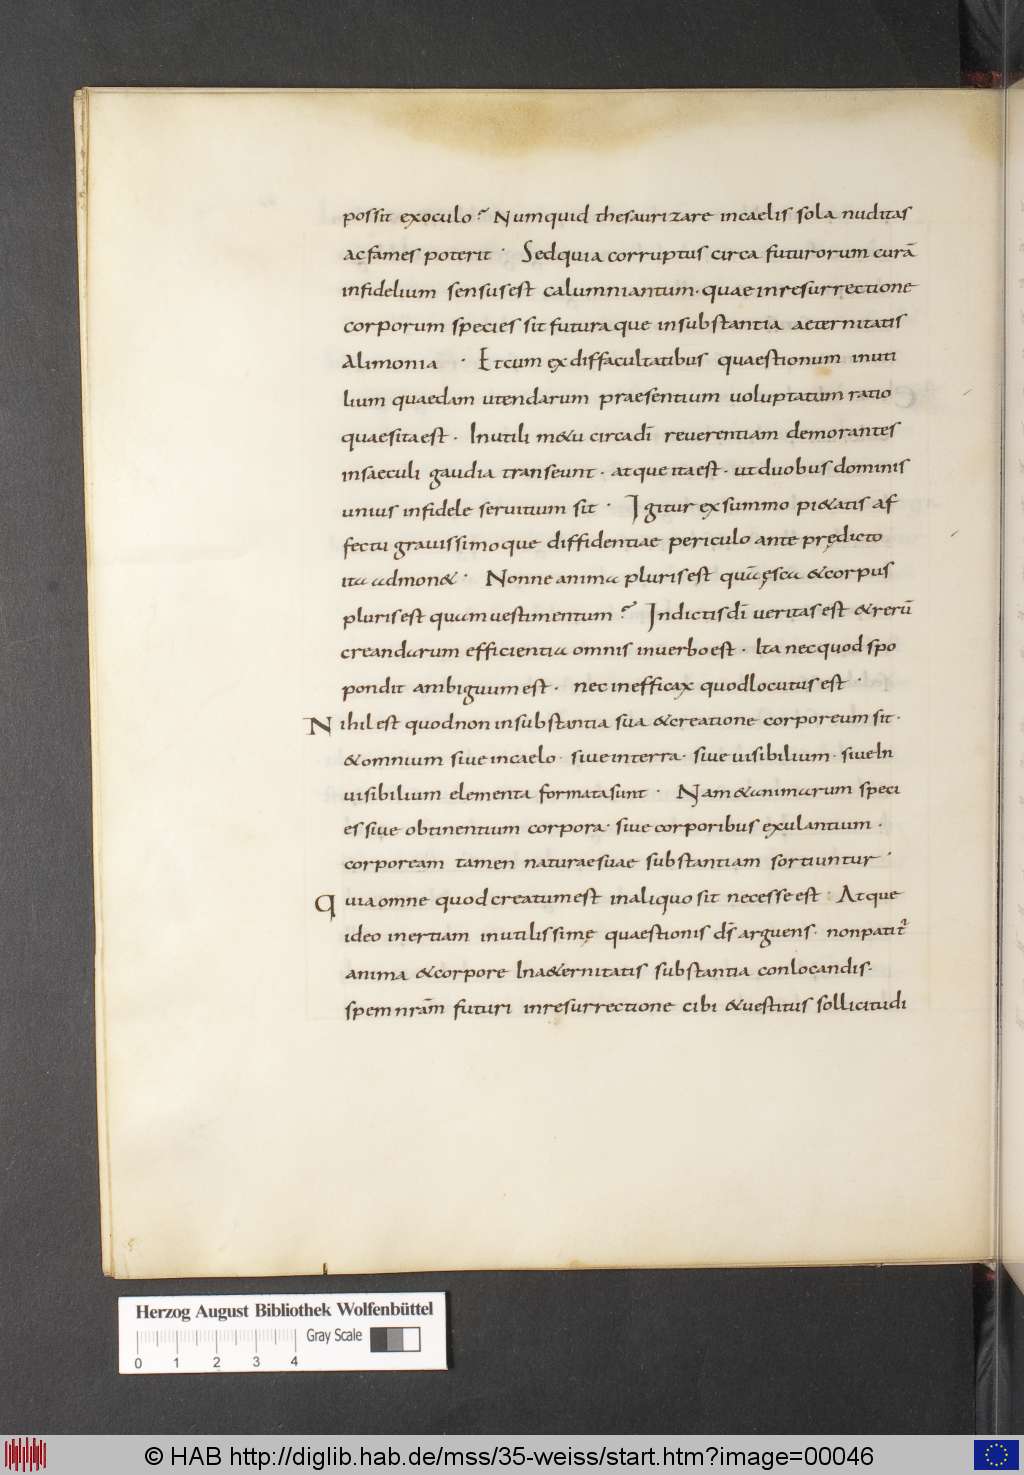 possit exoculo? Numquid thesaurizare incaelis sola nuditas
acfames poterit · Sedquia corruptus circa futurorum curā
infidelium sensusest calumniantum · quae inresurrectione
corporum species sit futura que insubstantia aeternitatis
alimonia · Etcum exdiffacultatibus quaestionum inuti
lium quaedam utendarum praesentium uoluptatum ratio
quaesitaest · Inutili m&u circadī reuerentiam demorantes
insaeculi gaudia transeunt · atque itaest · utduobus dominis
unius infidele seruitium sit · Igitur exsummo pi&atis af
fectu grauissimoque diffidentiae periculo ante prędicto
ita admon& · Nonne anima plurisest quā ęsca &corpus
plurisest quam uestimentum? Indictisdī ueritas est &rerū
creandarum efficientia omnis inuerboest · Ita necquod spo
pondit ambiguumest · nec inefficax quodlocutus est ·
Nihilest quodnon insubstantia sua &creatione corporeum sit ·
&omnium siue incaelo · siue interra · siue uisibilium · siueIn
uisibilium elementa formatasunt · Nam&animarum speci
es siue obtinentium corpora · siue corporibus exulantium ·
corpoream tamen naturaesuae substantiam sortiuntur ·
Quia omne quod creatumest inaliquo sit necesse est : Atque
ideo inertiam inutilissimę quaestionis ds̄ arguens · nonpatit᷑
anima &corpore Ina&ernitatis substantia conlocandis ·
spem nrām futuri inresurrectione cibi &uestitus sollicitudi
Herzog August Bibliothek Wolfenbüttel
Gray Scale
0 1 2 3 4
© HAB http://diglib.hab.de/mss/35-weiss/start.htm?image=00046